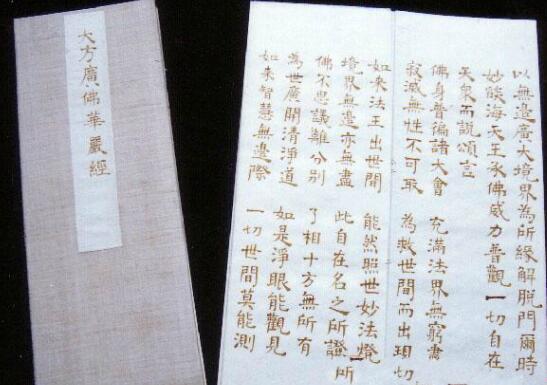 大方廣佛華嚴經
以無邊廣大境界為所緣解脫門爾時
妙燄海天王承佛威力普觀一切自在
天衆而說頌言
佛身普徧諸大會 充滿法界無窮盡
寂滅無性不可取 為救世間而出現切
如來法王出世間 能然照世妙法燈
境界無邊亦無盡 此自在名之所證所
佛不思議離分別 了相十方無所有
為世廣開清淨道 如是淨眼能觀見
如來智慧無邊際 一切世間莫能測